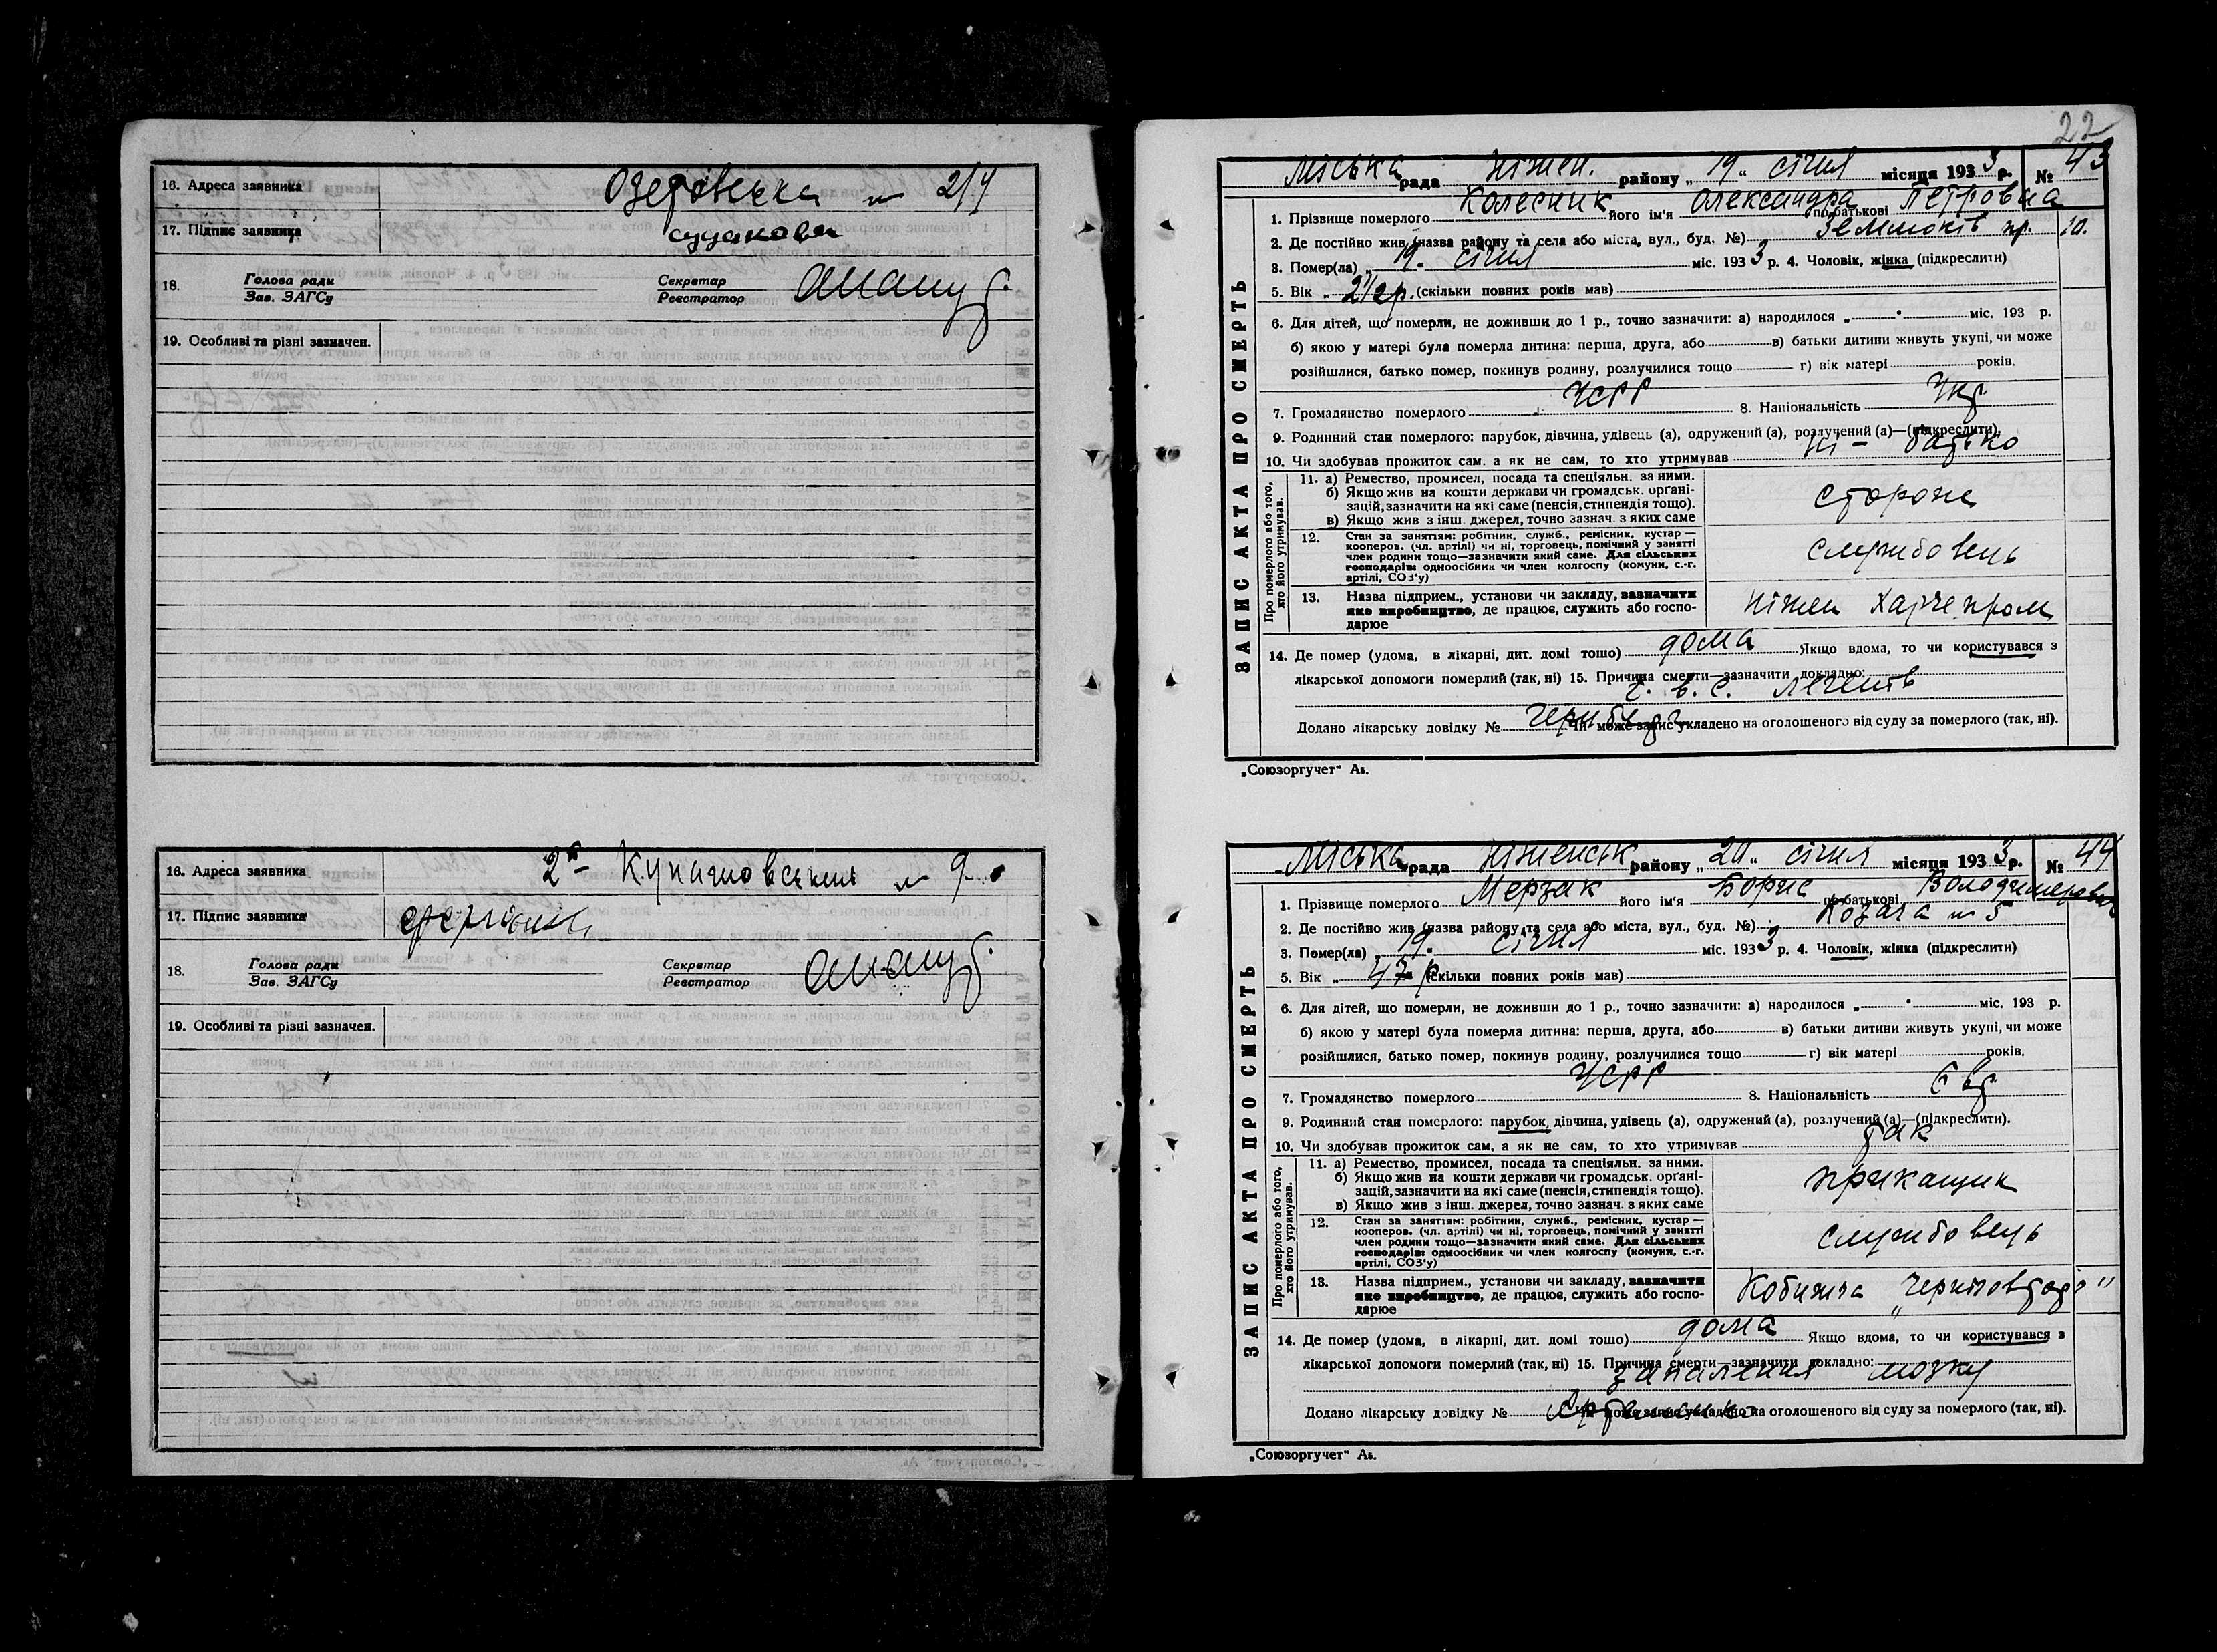 16. Адреса заявника Озерівська № 2/4
17. Підпис заявника
18. Голова ради Зав. ЗАГСу Секретар Реєстратор
19. Особливі та різні зазначен.
16. Адреса заявника 2а Кунашовський № 9
17. Підпис заявника
18. Голова ради Зав. ЗАГСу Секретар Реєстратор
19. Особливі та різні зазначен.
22
ЗАПИС АКТА ПРО СМЕРТЬ
Міська рада Ніжен. району „19" січня місяця 1933 р. № 43
1. Прізвище померлого Колесник його ім'я Олександра по батькові Петровна
2. Де постійно жив (назва району та села або міста, вул., буд. №) пр. 10.
3. Помер(ла) „19" січня міс. 1933 р. 4. Чоловік, жінка (підкреслити)
5. Вік „2 1/2 р. (скільки повних років мав)
6. Для дітей, що померли, не доживши до 1 р., точно зазначити: а) народилося „ " міс. 193 р.
б) якою у матері була померла дитина: перша, друга, або в) батьки дитини живуть укупі, чи може
розійшлися, батько помер, покинув родину, розлучилися тощо г) вік матері років.
7. Громадянство померлого УСРР 8. Національність Укр.
9. Родинний стан померлого: парубок, дівчина, удівець (а), одружений (а), розлучений (а)—(підкреслити)
10. Чи здобував прожиток сам, а як не сам, то хто утримував Ні - батько
Про померлого або того, хто його утримував.
11. а) Ремество, промисел, посада та спеціяльн. за ними.
б) Якщо жив на кошти держави чи громадськ. органі-
зацій, зазначити на які саме (пенсія, стипендія тощо).
в) Якщо жив з інш. джерел, точно зазнач. з яких саме
сторож
12. Стан за заняттям: робітник, служб., ремісник, кустар—
кооперов. (чл. артілі) чи ні, торговець, помічний у занятті
член родини тощо—зазначити який саме. Для сільських
господарів: одноосібник чи член колгоспу (комуни, с.-г.
артілі, СОЗ'у)
службовець
13. Назва підприєм., установи чи закладу, зазначити
яке виробництво, де працює, служить або госпо-
дарює
Ніжен Харчепром
14. Де помер (удома, в лікарні, дит. домі тощо) дома Якщо вдома, то чи користувався з
лікарської допомоги померлий (так, ні) 15. Причина смерти—зазначити докладно:
Додано лікарську довідку № Чи може запис укладено на оголошеного від суду за померлого (так, ні).
„Союзоргучет" Ав.
ЗАПИС АКТА ПРО СМЕРТЬ
Міська рада Ніженськ району „20" січня місяця 1933 р. № 44
1. Прізвище померлого Мерзак його ім'я Борис по батькові Володимерович
2. Де постійно жив (назва району та села або міста, вул., буд. №) Козача № 5
3. Помер(ла) „19" січня міс. 1933 р. 4. Чоловік, жінка (підкреслити)
5. Вік „ (скільки повних років мав)
6. Для дітей, що померли, не доживши до 1 р., точно зазначити: а) народилося „ " міс. 193 р.
б) якою у матері була померла дитина: перша, друга, або в) батьки дитини живуть укупі, чи може
розійшлися, батько помер, покинув родину, розлучилися тощо г) вік матері років.
7. Громадянство померлого УСРР 8. Національність Євр.
9. Родинний стан померлого: парубок, дівчина, удівець (а), одружений (а), розлучений (а)—(підкреслити).
10. Чи здобував прожиток сам, а як не сам, то хто утримував так
Про померлого або того, хто його утримував.
11. а) Ремество, промисел, посада та спеціяльн. за ними.
б) Якщо жив на кошти держави чи громадськ. органі-
зацій, зазначити на які саме (пенсія, стипендія тощо).
в) Якщо жив з інш. джерел, точно зазнач. з яких саме
прикащик
12. Стан за заняттям: робітник, служб., ремісник, кустар—
кооперов. (чл. артілі) чи ні, торговець, помічний у занятті
член родини тощо—зазначити який саме. Для сільських
господарів: одноосібник чи член колгоспу (комуни, с.-г.
артілі, СОЗ'у)
службовець
13. Назва підприєм., установи чи закладу, зазначити
яке виробництво, де працює, служить або госпо-
дарює
Кобижча
14. Де помер (удома, в лікарні, дит. домі тощо) дома Якщо вдома, то чи користувався з
лікарської допомоги померлий (так, ні) 15. Причина смерти—зазначити докладно:
запалення мозку
Додано лікарську довідку № Чи може запис укладено на оголошеного від суду за померлого (так, ні).
„Союзоргучет" Ав.